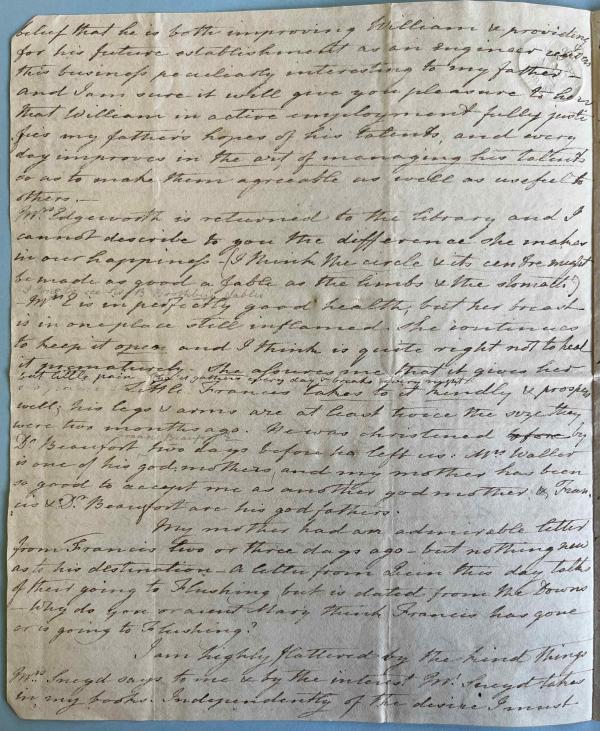 belief that he is both improving William & providing
for his future establishment as an engineer renders
this business peculiarly interesting to my father –
and I am sure it will give you pleasure to hear
that William in active employment fully justi
fies my father's hopes of his talents, and every
day improves in the art of managing his talents
so as to make them agreeable as well as useful to
others. —
Mrs Edgeworth is returned to the library and I
cannot describe to you the difference she makes
in our happiness (I think the circle & its centre might
be made as good a fable as the limbs & the stomach)
Mrs E is in perfectly good health, but her breast
is in one place still inflamed. She continues
to keep it open and I think is quite right not to heal
it prematurely. She assures me that it gives her
but little pain. every day & breaks every night
Little Francis takes to it kindly & prospers
well; his legs & arms are at least twice the size they
were two months ago. He was christened before by
Francis Beaufort
Dr Beaufort two days before he left us: Mrs Waller
is one of his godmothers and my mother has been
so good to accept me as another god mother & Fran
cis & Dr Beaufort are his god fathers.
My mother had an admirable letter
from Francis two or three days ago – but nothing new
as to his destination – A letter from this day talks
of their going to Flushing but is dated from the Downs
– Why do you or aunt Mary think Francis has gone
or is going to Flushing?
I am highly flattered by the kind things
Mrs Sneyd says to me & by the interest Mr Sneyd takes
in my books. Independently of the desire I must